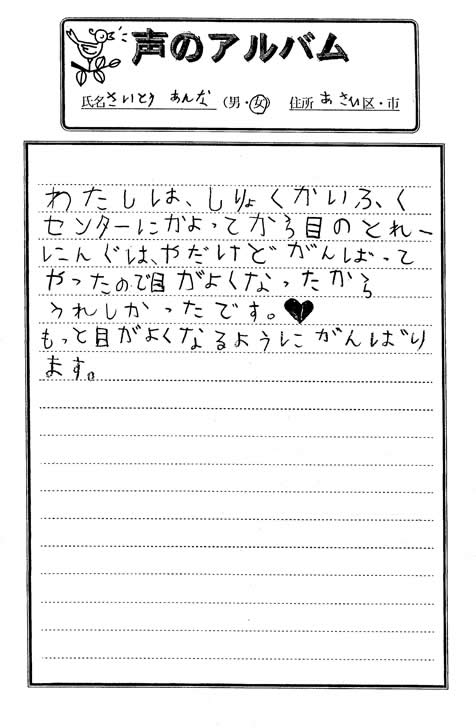 声のアルバム
氏名さいとう あんな (男・女) 住所 あさひ区・市
わたしは、しりょくかいふく
センターにかよってから目のとれー
にんぐは、やだけどがんばって
やったので目がよくなったから
うれしかったです。
もっと目がよくなるようにがんばり
ます。